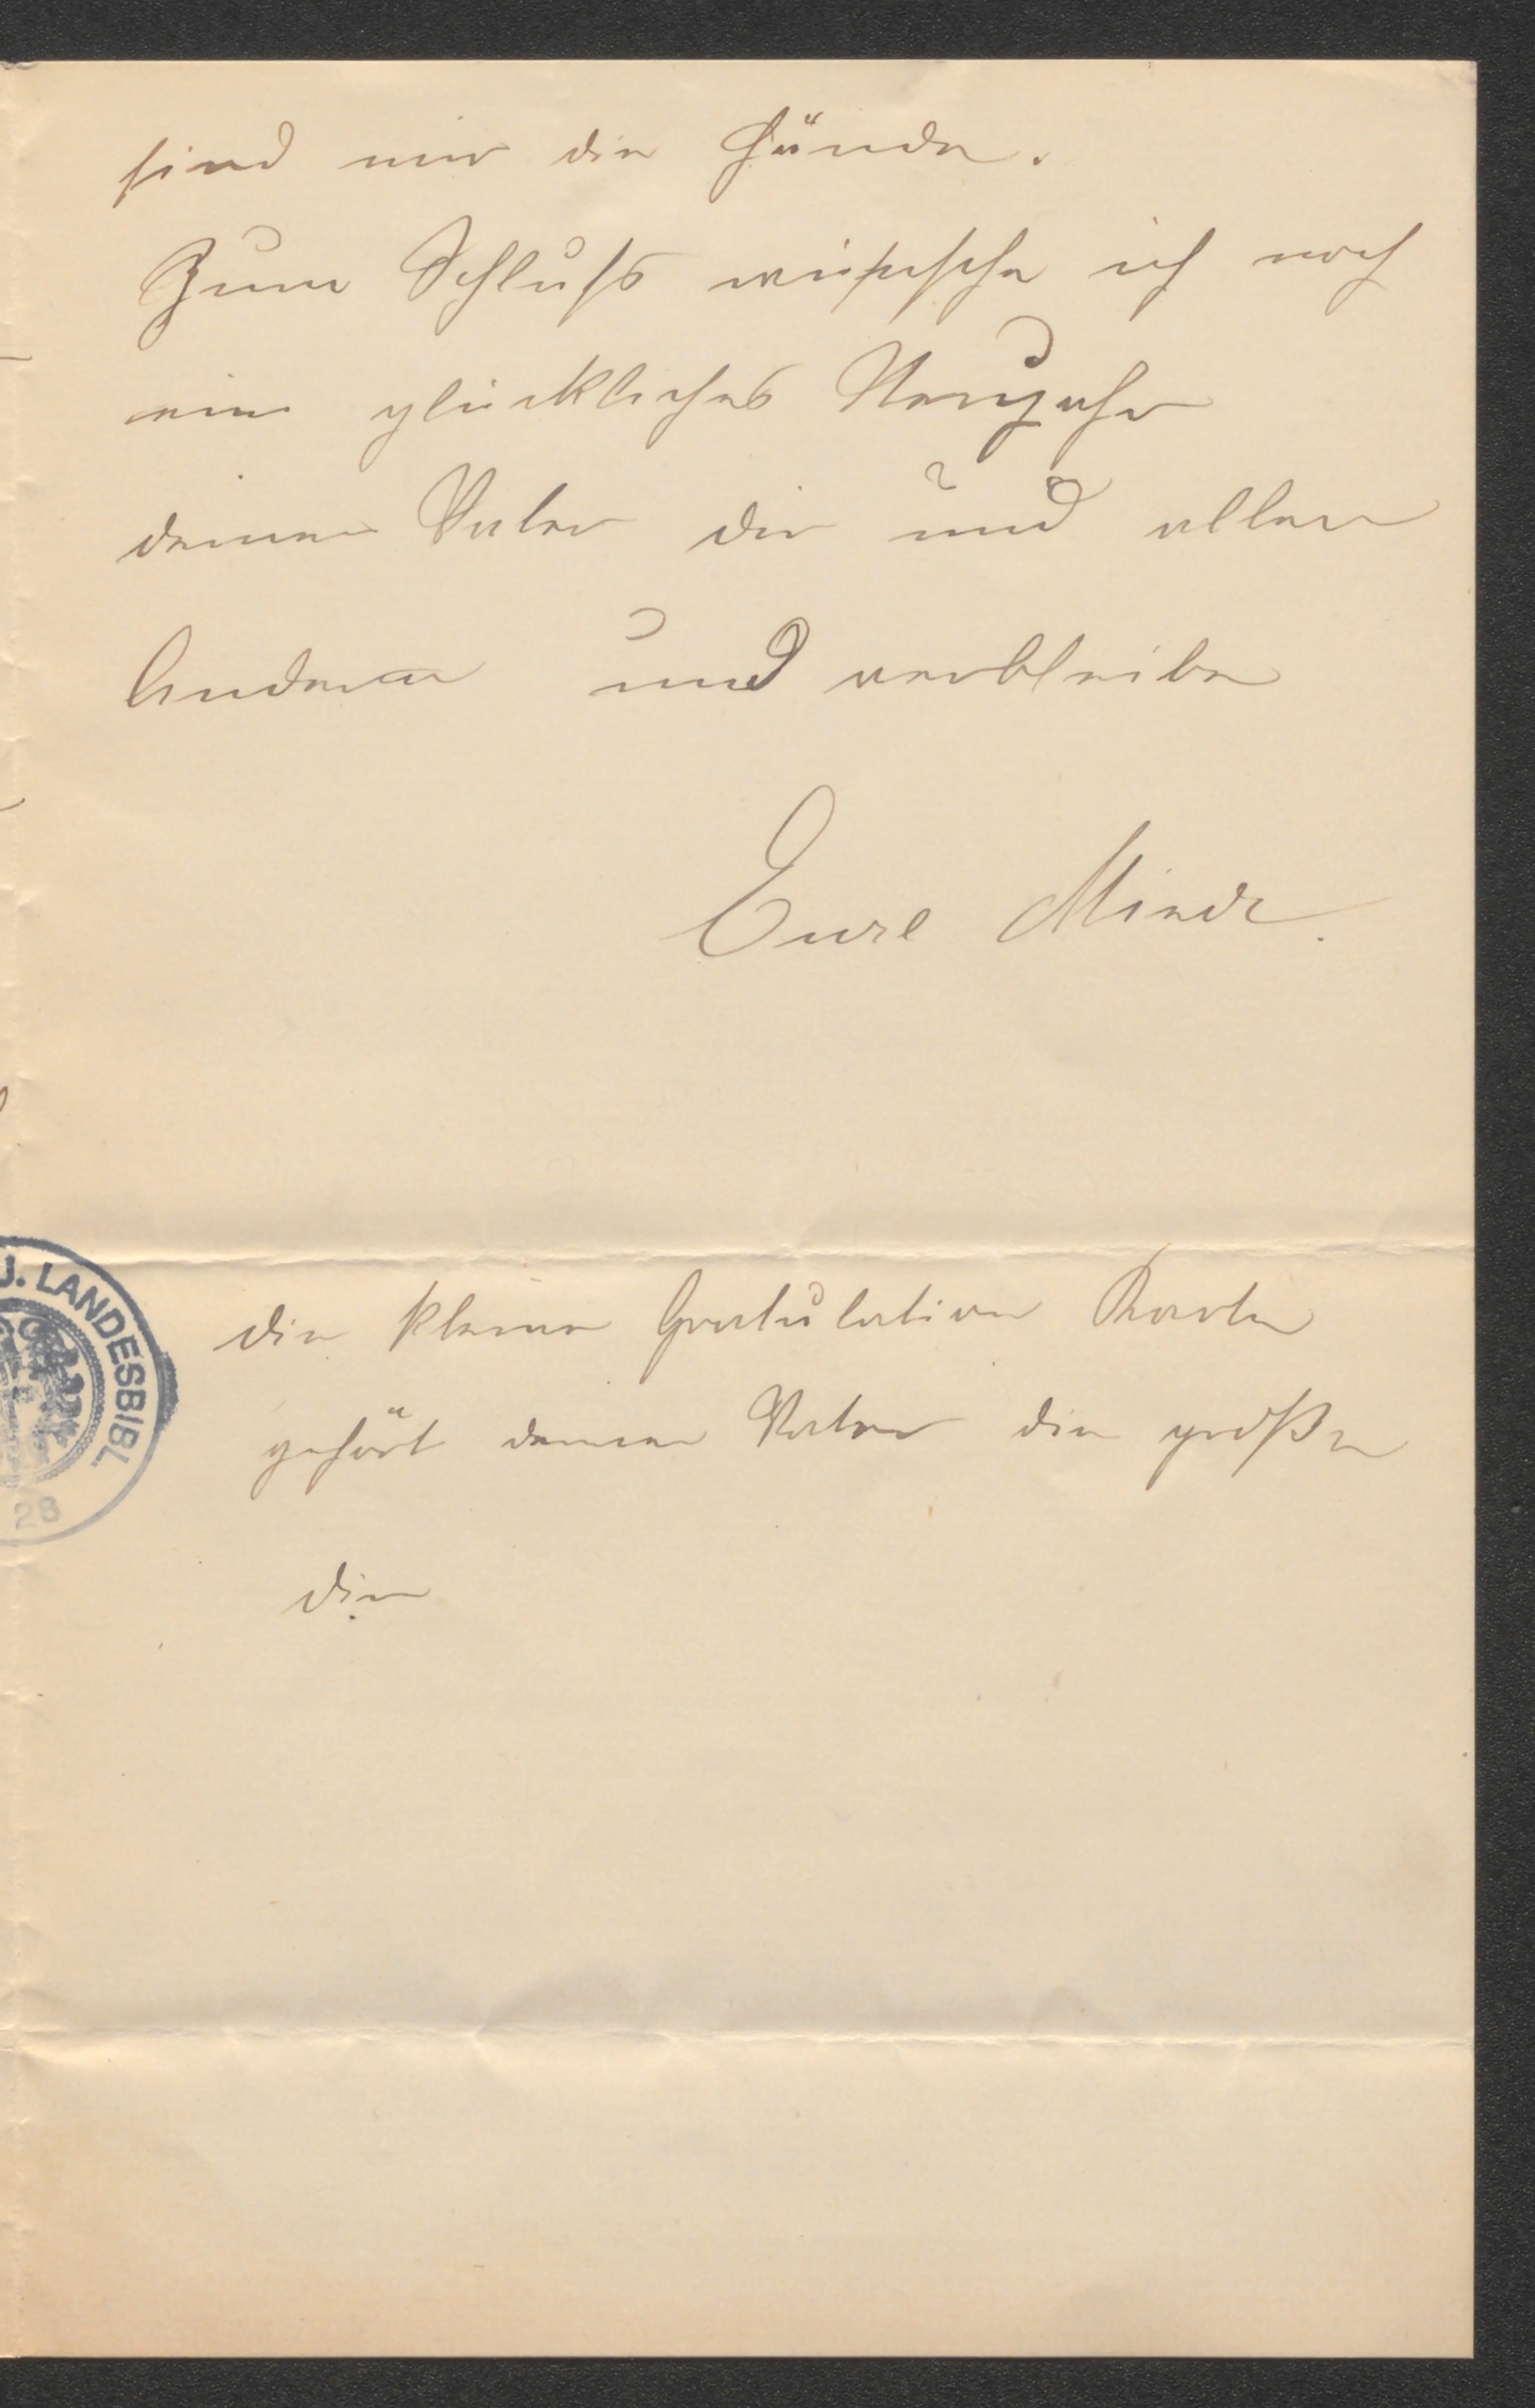 sind mir die Hände.
Zum Schluß wünsche ich noch
ein glückliches Neujahr
deinen Vater dir und allen
Anderen und verbleibe
Eure Mina.
die kleine Gratulation Karte
gehört deinen Vater die große
dir
J. LANDESBIBL.
28